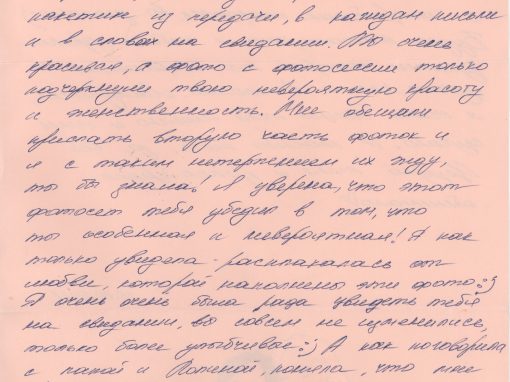 пакетик из передачи, в каждом письме
и в словах на свидании. Ты очень
красивая, а фото с фотосессии только
подчеркнули твою невероятную красоту
и женственность. Мне обещали
прислать вторую часть фоток и
я с таким нетерпением их жду,
ты бы знала. Я уверена, что этот
фотосет тебя убедил в том, что
ты особенная и невероятная! Я как
только увидела - расплакалась от
любви, которой наполнены эти фото :)
Я очень очень была рада увидеть тебя
на свидании, вы совсем не изменились,
только более улыбчивые :) А как поговорила
с папой и поняла, что мне